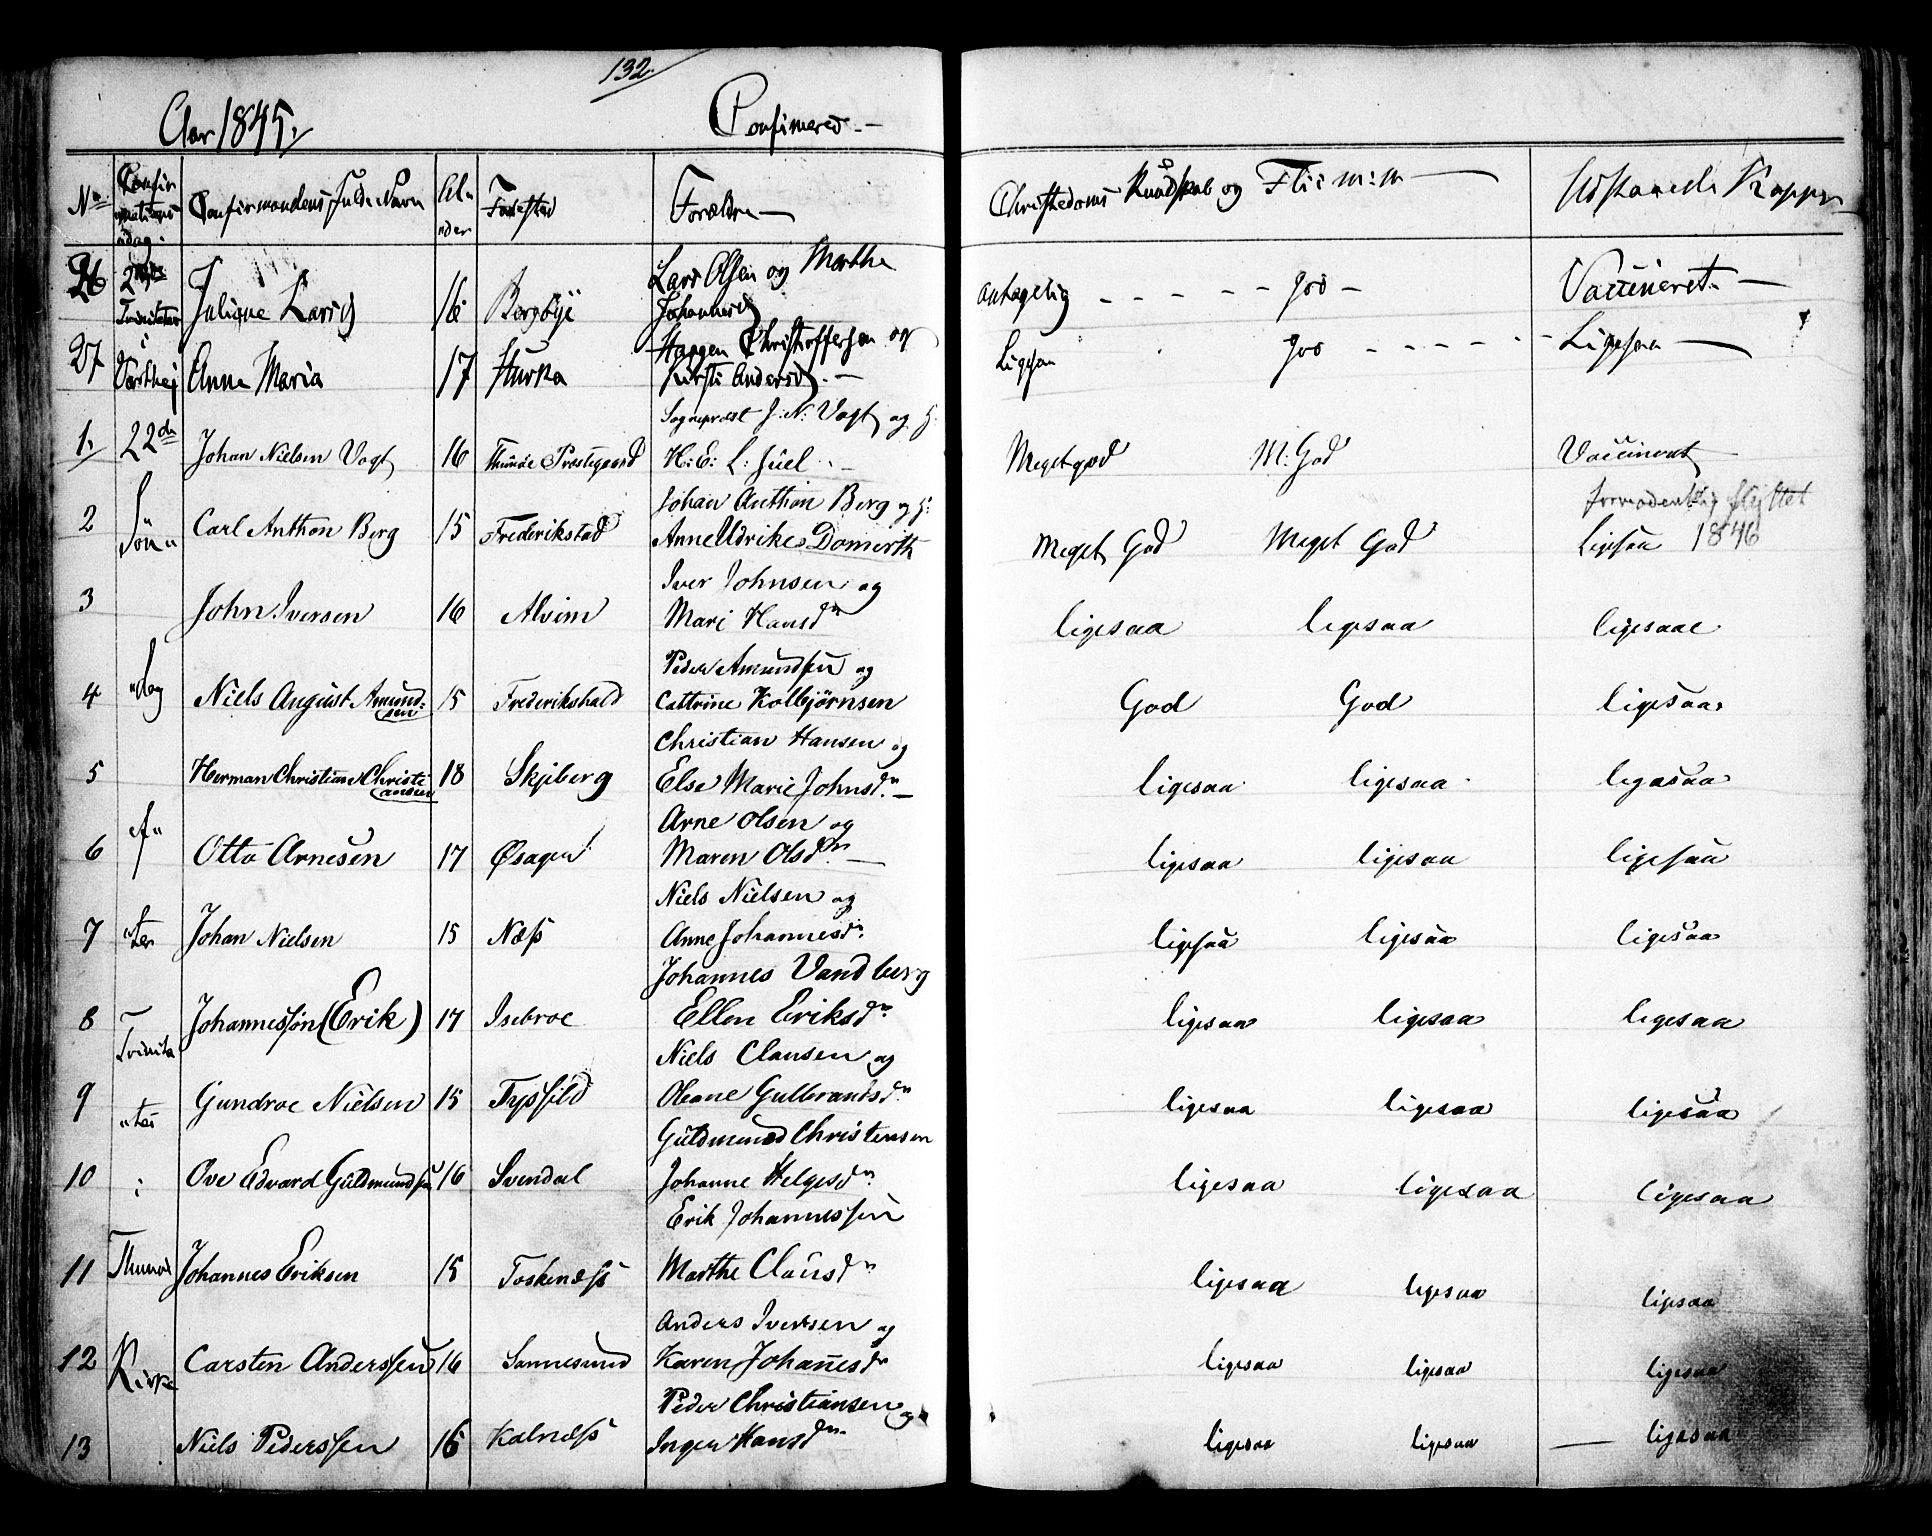 132.
Aar 1845.
Confirmered. —
No Confirmationsdag. Confirmandens Fulde Navn Alder Fødested Forældre — Christedoms Kundskab og Fli Udstaaede Kopper
26 2den Trinitates Juliane Larsd 16 Borgøye Lars Olsen og Marthe Johannesd antagelig — — — — — god — Vaccineret. —
27 i Varthej Anne Maria 17 Hurka Haagen Christoffersen og Kirsti Andersd. — Ligesaa god — — — — — Ligesaa —
Sognepræst J: N: Vogt og H:
1. 22de Johan Nielsen Vogt 16 Thunøe Præstegaard H: E: L: Juel. — Meget god M: God Vaccineret
Johan Anthon Berg og H: formodentlig flyttet
2 Sön„ Carl Anthon Berg 15 Frederikstad Anne Uldrikes Domerth Meget God Meget God Ligesaa 1846
Iver Johnsen og
3 John Iversen 16 Alvim Mari Hansdn ligesaa ligesaa ligesaae
Peder Amundsen og
4 „dag Niels August Amundsen 15 Frederikshald Cattrine Kolbjørnsen God God ligesaa.
Christian Hansen og
5 Herman Christian Christiansen 18 Skjeberg Else Marie Johnsdn. — ligesaa ligesaa ligesaa
Arne Olsen og
6 ef„ Otto Arnesen 17 Øsagen Maren Olsdn. — ligesaa ligesaa ligesaa
Niels Nielsen og
7 „ter Johan Nielsen 15 Næss Anne Johannesdn. ligesaa ligesaa ligesaa
Johannes Vandberg
8 Trinita Johannessøn (Erik) 17 Isebroe Ellen Eriksdn ligesaa ligesaa ligesaa
Niels Clausen og
9 „tes Gundroe Nielsen 15 Tyssfild Oleane Gulbrandsdn ligesaa ligesaa ligesaa
Guldmund Christensen
10 i Ove Edvard Guldmundsen 16 Svendal Johanne Helgesdn ligesaa ligesaa ligesaa
Erik Johannessen
11 Thunøe Johannes Eriksen 15 Toskenæss Marthe Clausdn ligesaa ligesaa ligesaa
Anders Iversen og
12 Kirke Carsten Anderssen 16 Sannesund Karen Johanesdr ligesaa ligesaa ligesaa
Peder Christiansen og
13 Niels Pederssen 16 Kalnæss Inger Hansdn ligesaa ligesaa — ligesaa